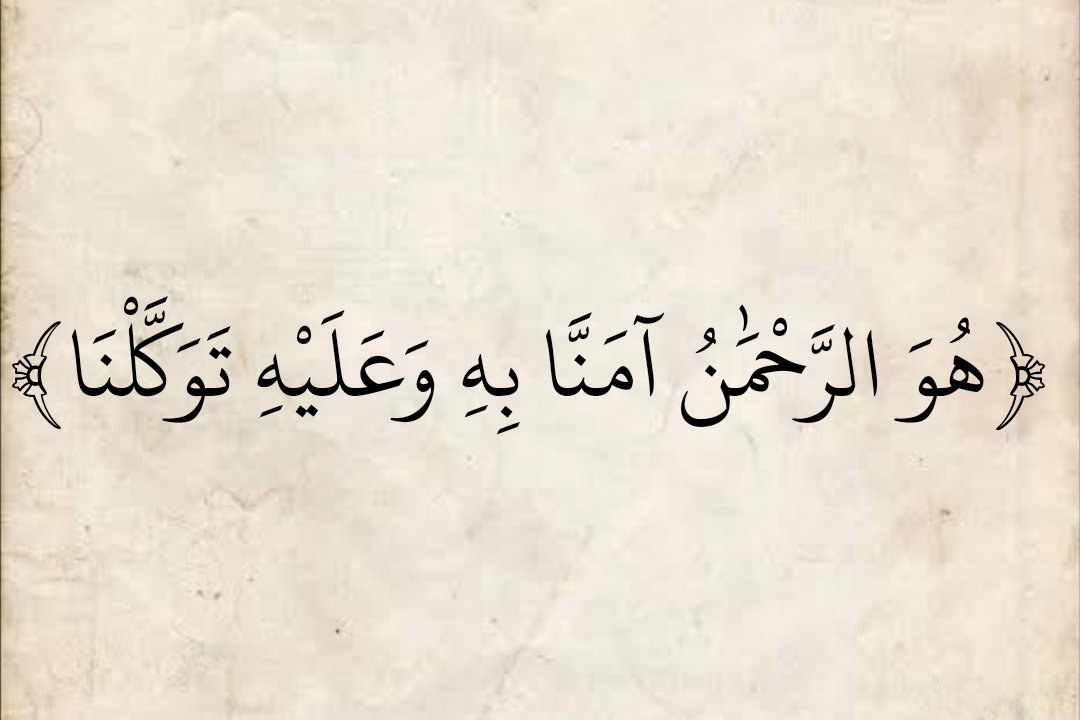 ﴿هُوَ الرَّحْمَٰنُ آمَنَّا بِهِ وَعَلَيْهِ تَوَكَّلْنَا﴾